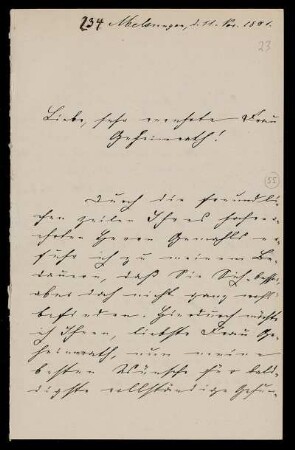 234 Melsungen, d. 11. Nov. 1891.
23
Liebe, sehr verehrte Frau
Geheimrath!
55
Durch die freundli-
chen Zeilen Ihres hochver-
ehrten Herrn Gemahls er-
fuhr ich zu meinem Be-
dauern, daß Sie Sich besser,
aber doch nicht ganz wohl
befinden. Hiedurch möchte
ich Ihnen, liebste Frau Ge-
heimrath, nun meine
besten Wünsche für bal-
digste vollständige Gesun-